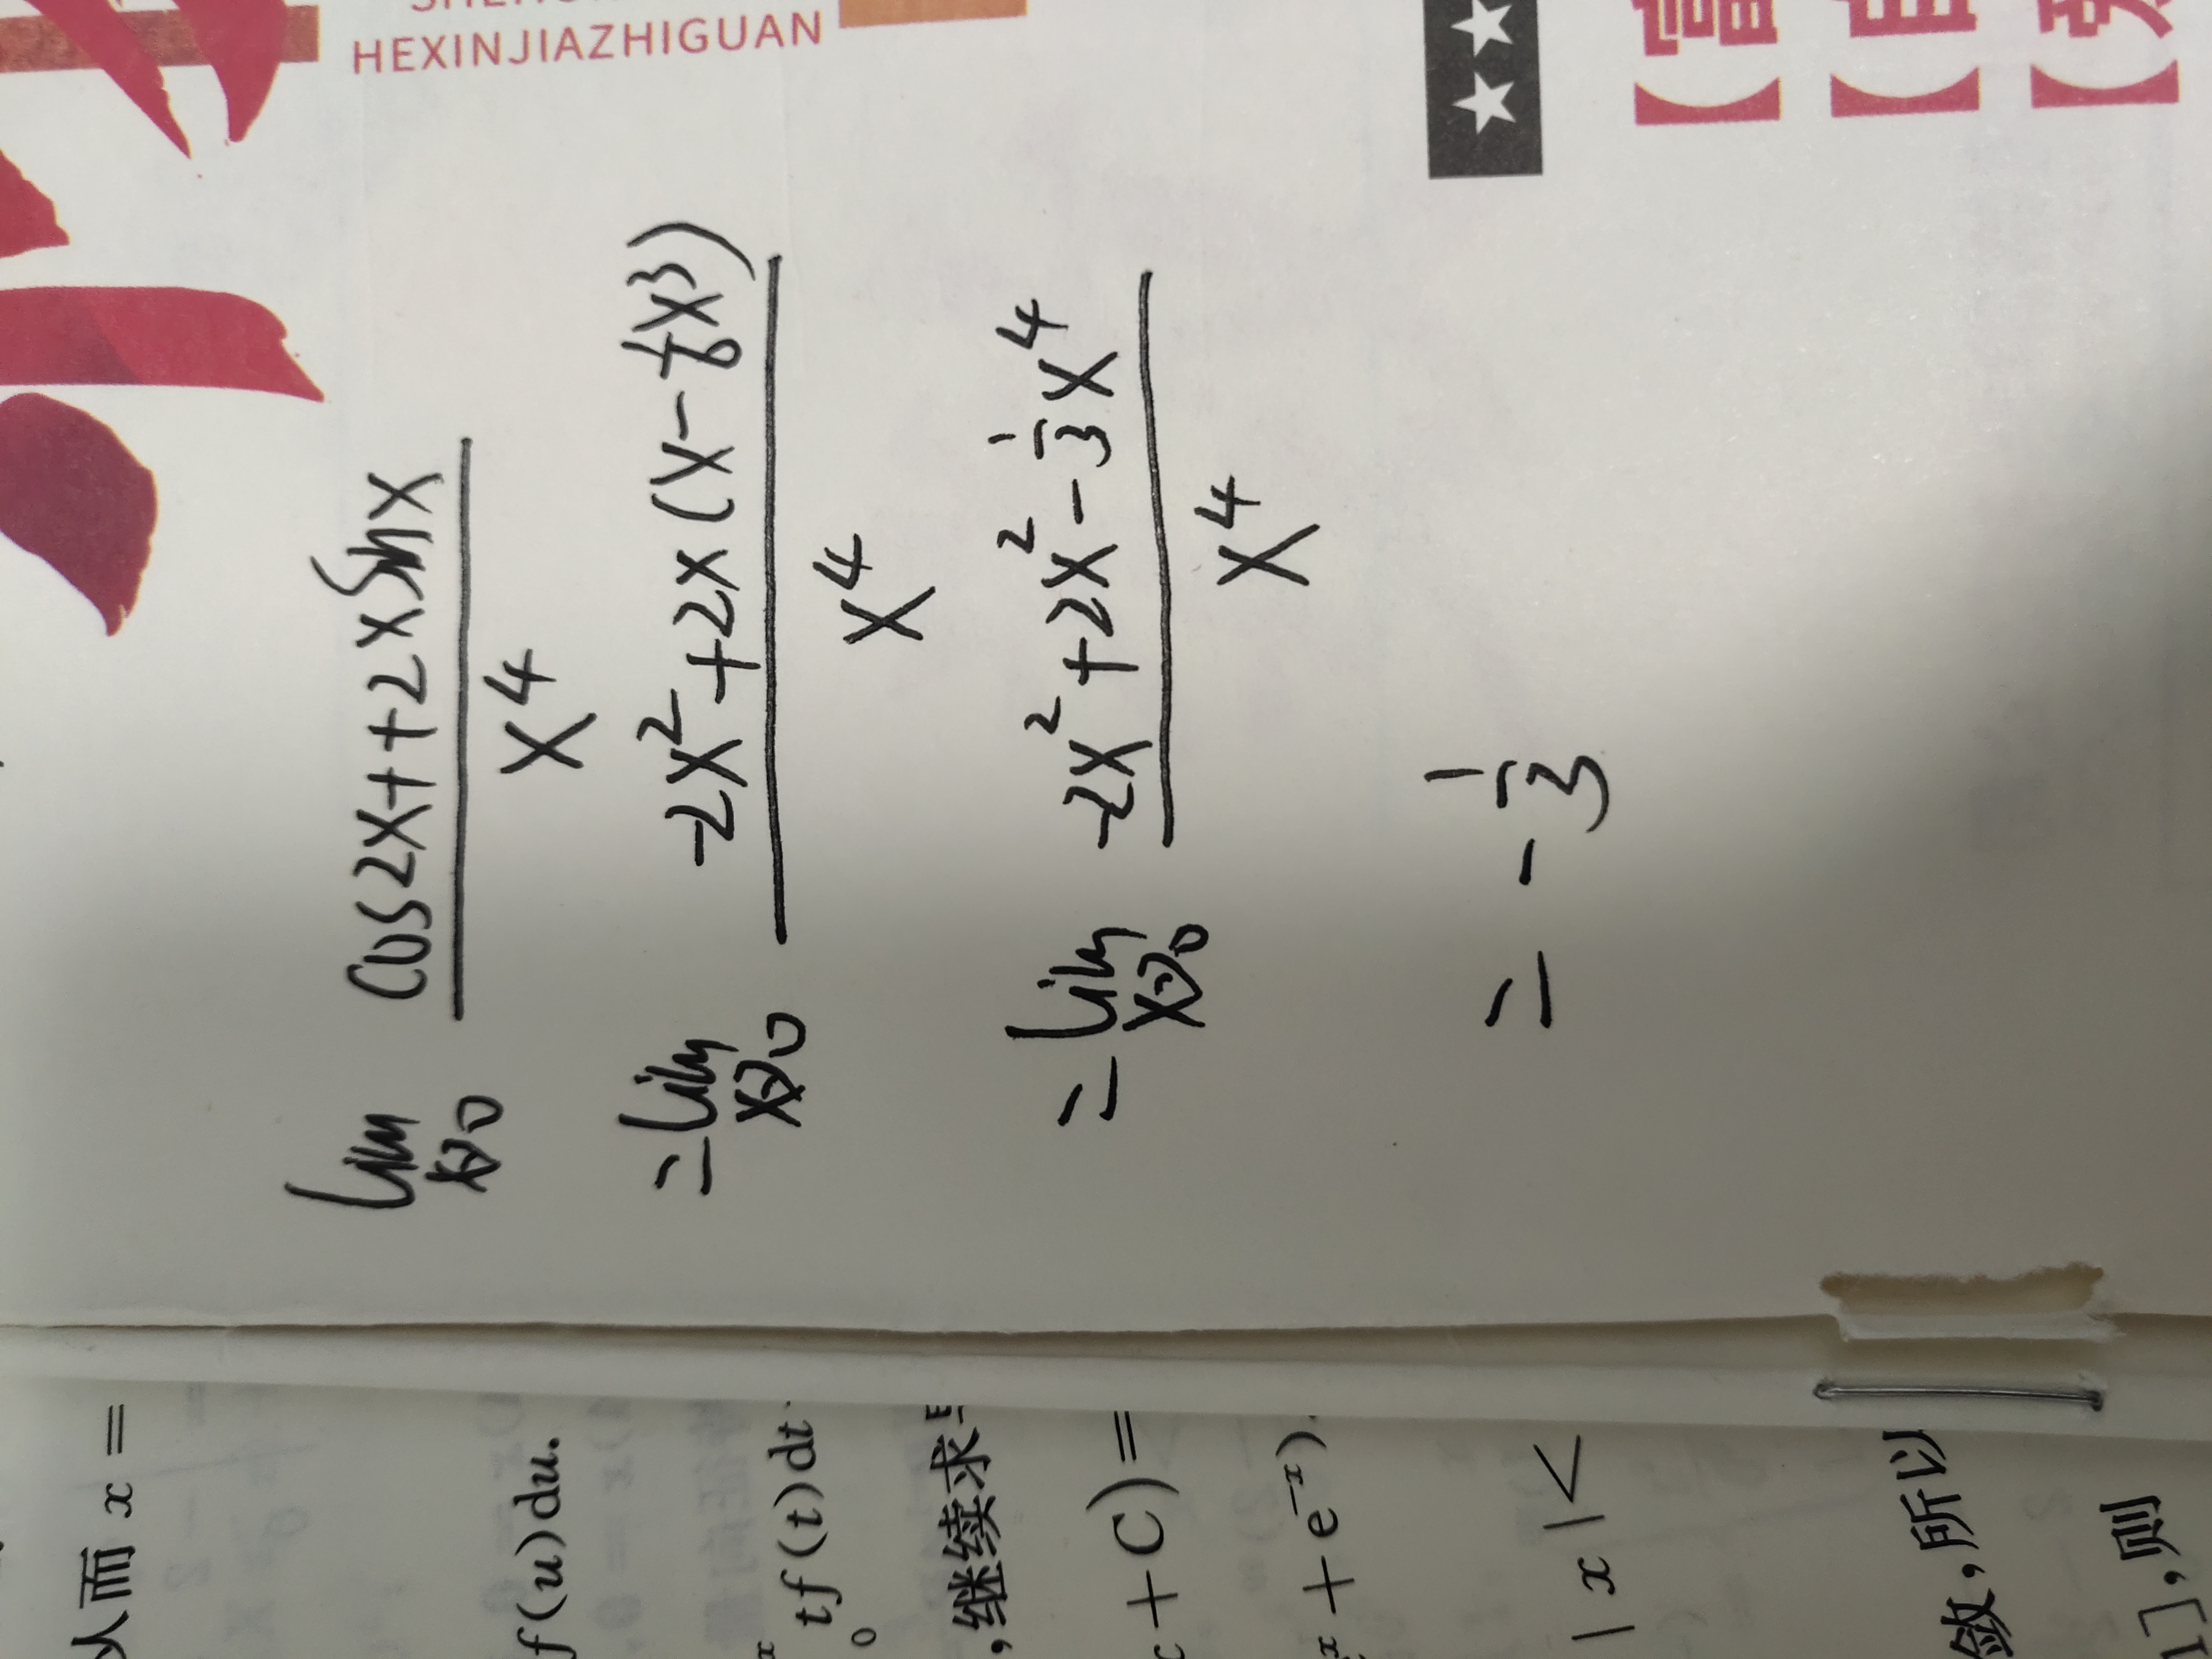 HEXINJIAZHIGUAN
★★
lim x→0 cos2x++2xsinx / x⁴
=lim x→0 -2x²+2x(x-1/6x³) / x⁴
=lim x→0 -2x²+2x²-1/3x⁴ / x⁴
=-1/3
从而 x =
f(u)du.
tf(t)dt
,继续求
+C)=
+e⁻ˣ)
|x|<
敛,所以
1],则